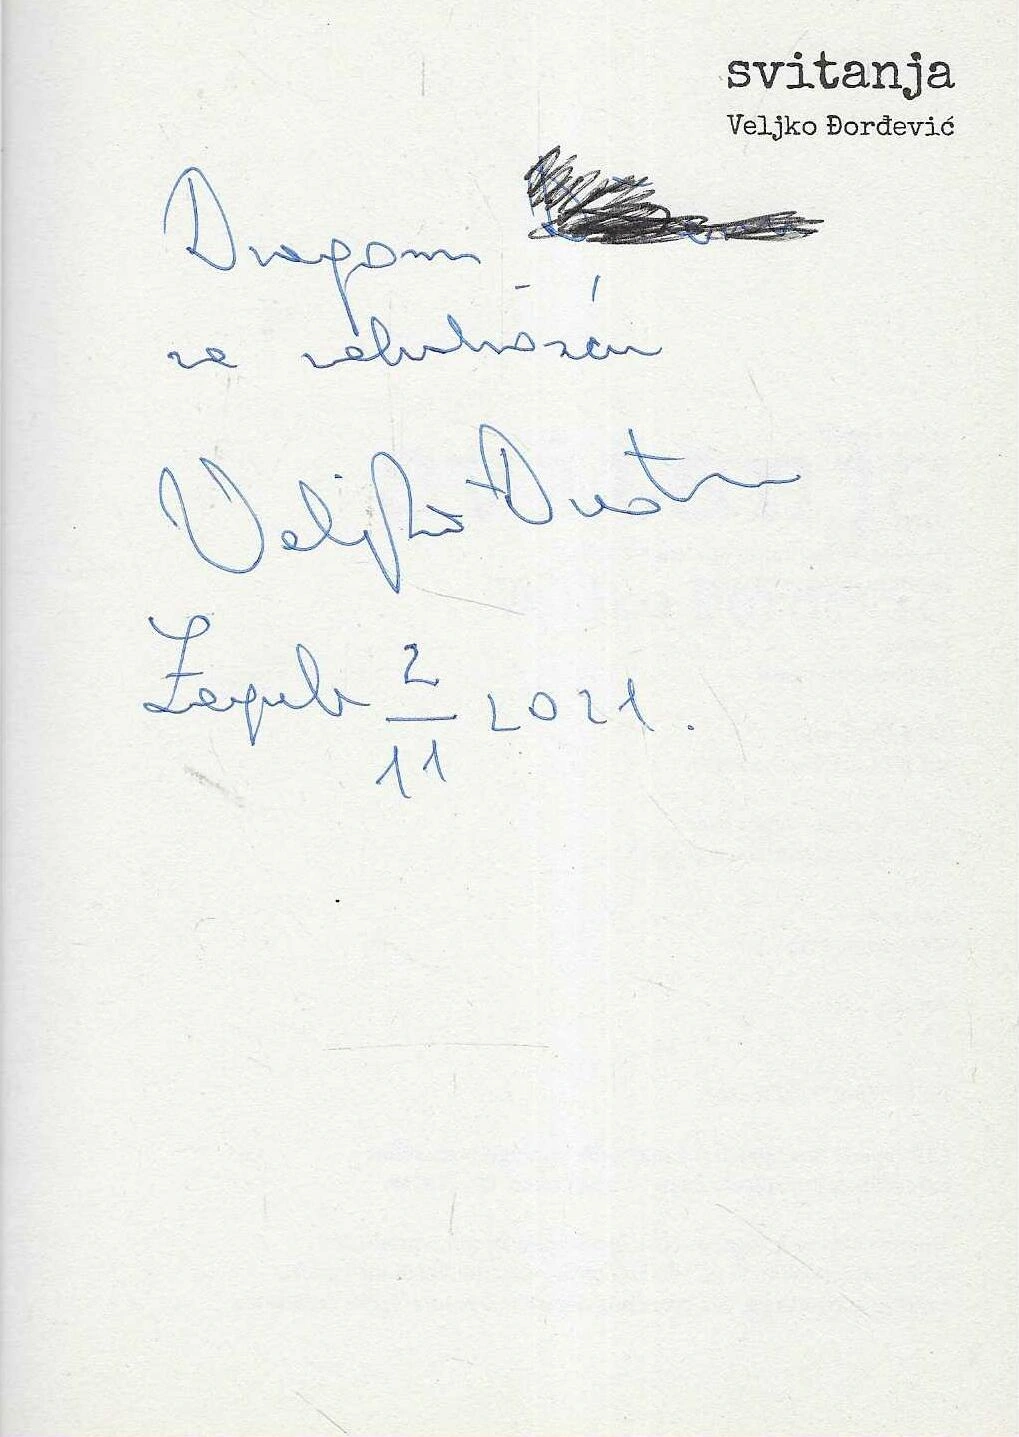 svitanja
Veljko Đorđević
Dragom
sa zahvalnošću
Veljko Đ
Zagreb 2/11 2021.